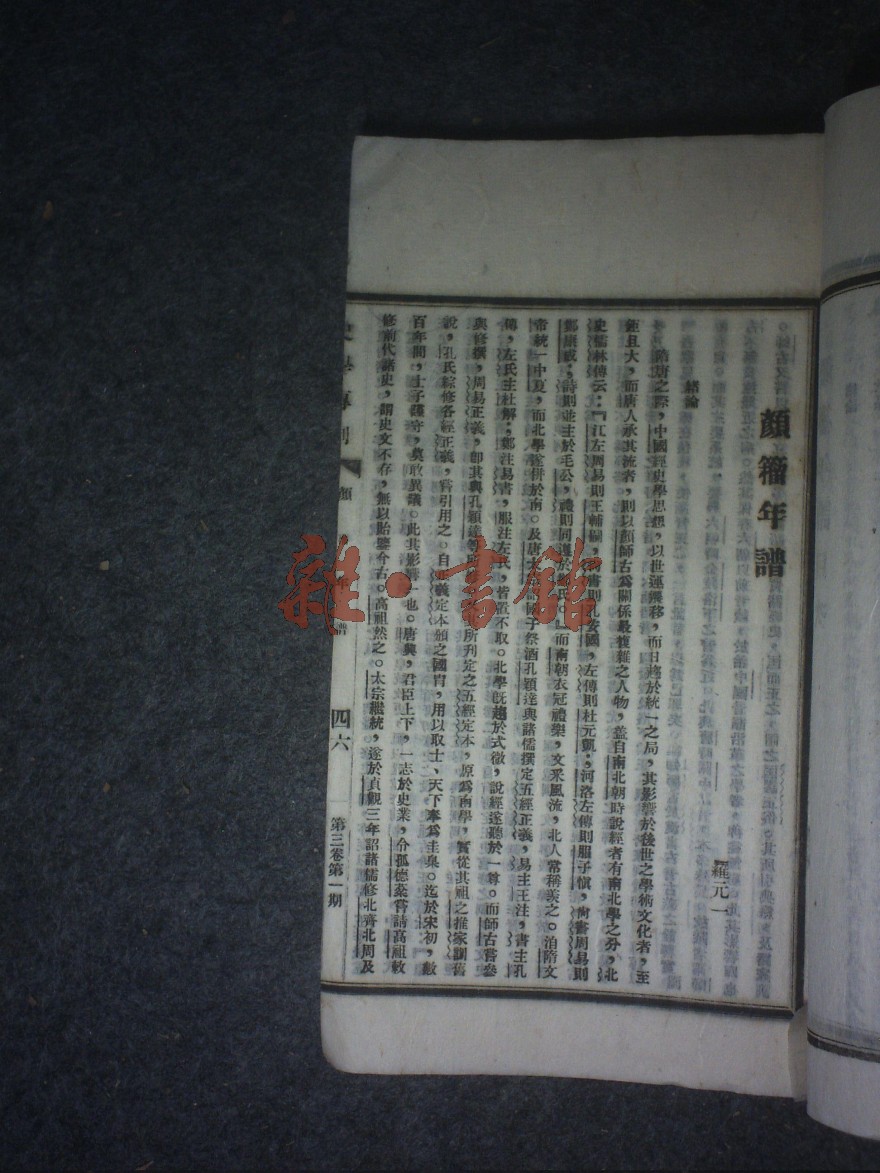 顏籀年譜
羅元一
緒論
隋唐之際，中國經史學思想，以世運遷移，而日趨於統一之局，其影響於後世之學術文化者，至
鉅且大，而唐人承其流者，則以顏師古爲關係最複雜之人物，蓋自南北朝時說經者有南北學之分，北
史儒林傳云：『江左周易則王輔嗣，尚書則孔安國，左傳則杜元凱；河洛左傳則服子愼，尚書周易則
鄭康成；詩則並主於毛公，禮則同遵於鄭氏。』而南朝衣冠禮樂，文采風流，北人常稱羨之。洎隋文
帝統一中夏，而北學遂併於南。及唐太宗詔國子祭酒孔穎達與諸儒撰定五經正義，易主王注，書主孔
傳，左氏主杜解；鄭注易書，服注左氏，皆置不取。北學旣趨於式微，說經遂聽於一尊。而師古嘗參
與修撰，周易正義，卽其與孔穎達等所判定之五經定本，原爲南學，實從其祖之推家訓舊
說，孔氏綜修各經正義，嘗引用之。自義定本頒之國胄，用以取士，天下奉爲圭臬。迄於宋初，數
百年間，士子謹守，莫敢異議。此其影響一也。唐興，君臣上下，一志於史業，令狐德棻嘗請高祖敕
修前代諸史，謂史文不存，無以貽鑒今古。高祖然之。太宗繼統，遂於貞觀三年詔諸儒修北齊北周及
史學專刊
顏
年
譜
四六
第三卷第一期
雜·書館